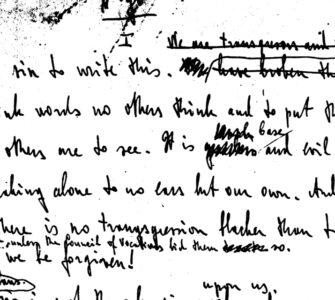 I
We are transgressors and
sin to write this. have broken th
nk words no others think and to put th
base
others are to see. It is and evil
king alone to no ears but our own. And
here is no transgression blacker than t
unless the Council of Vocations bid them so.
we be forgiven!
upon us.